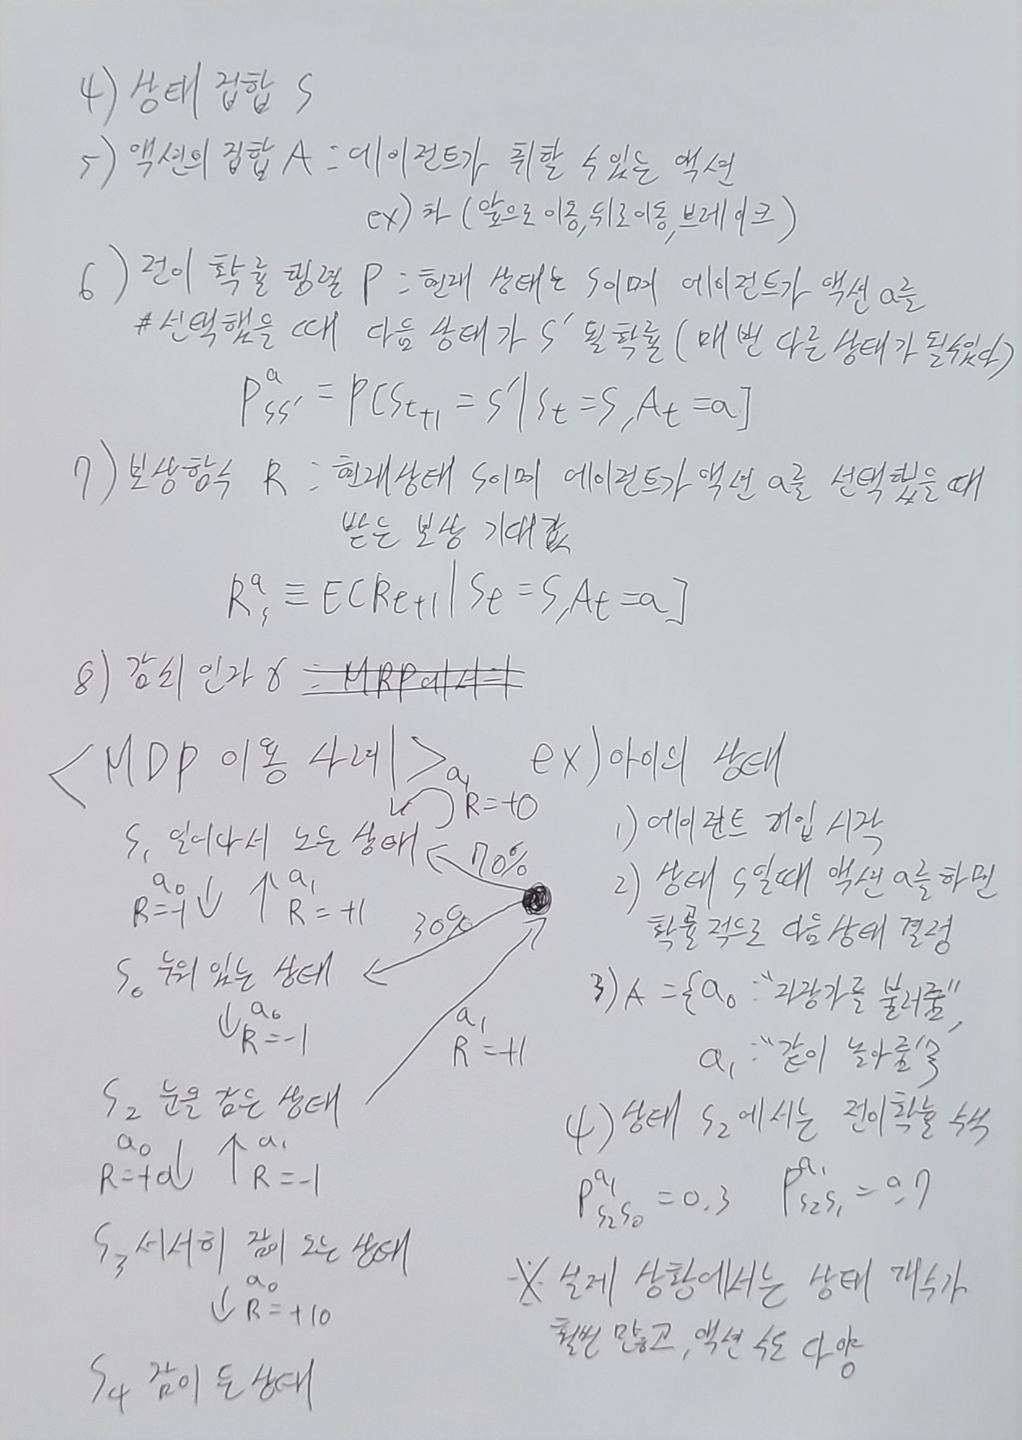 4) 상태 집합 S
5) 액션의 집합 A : 에이전트가 취할 수 있는 액션
ex) 차 (앞으로 이동, 뒤로 이동, 브레이크)
6) 전이 확률 행렬 P : 현재 상태는 S이며 에이전트가 액션 a를
#선택했을 때 다음 상태가 S' 될 확률 (매번 다른 상태가 될 수 있다)
P^a_{ss'} = P[S_{t+1} = S' | S_t = S, A_t = a]
7) 보상함수 R : 현재상태 S이며 에이전트가 액션 a를 선택했을 때
받는 보상 기대값
R^a_s ≡ E[R_{t+1} | S_t = S, A_t = a]
8) 감쇠 인자 γ : MRP에서
<MDP 이용 사례>
a_1
R=+0
S_1 일어나서 노는 상태
70%
a_0
R=-1
↓ ↑
a_1
R=+1
30%
S_0 누워 있는 상태
↓
a_0
R=-1
a_1
R=+1
S_2 눈을 감은 상태
a_0
R=+0
↓ ↑
a_1
R=-1
S_3 서서히 잠이 오는 상태
↓
a_0
R=+10
S_4 잠이 든 상태
ex) 아이의 상태
1) 에이전트 개입 시작
2) 상태 S일때 액션 a를 하면
확률적으로 다음상태 결정
3) A = {a_0 : "자장가를 불러줌",
a_1 : "같이 놀아줌"}
4) 상태 S_2에서는 전이확률
P^{a_1}_{S_2S_0} = 0.3 P^{a_1}_{S_2S_1} = 0.7
※ 실제 상황에서는 상태 개수가
훨씬 많고, 액션 수도 다양